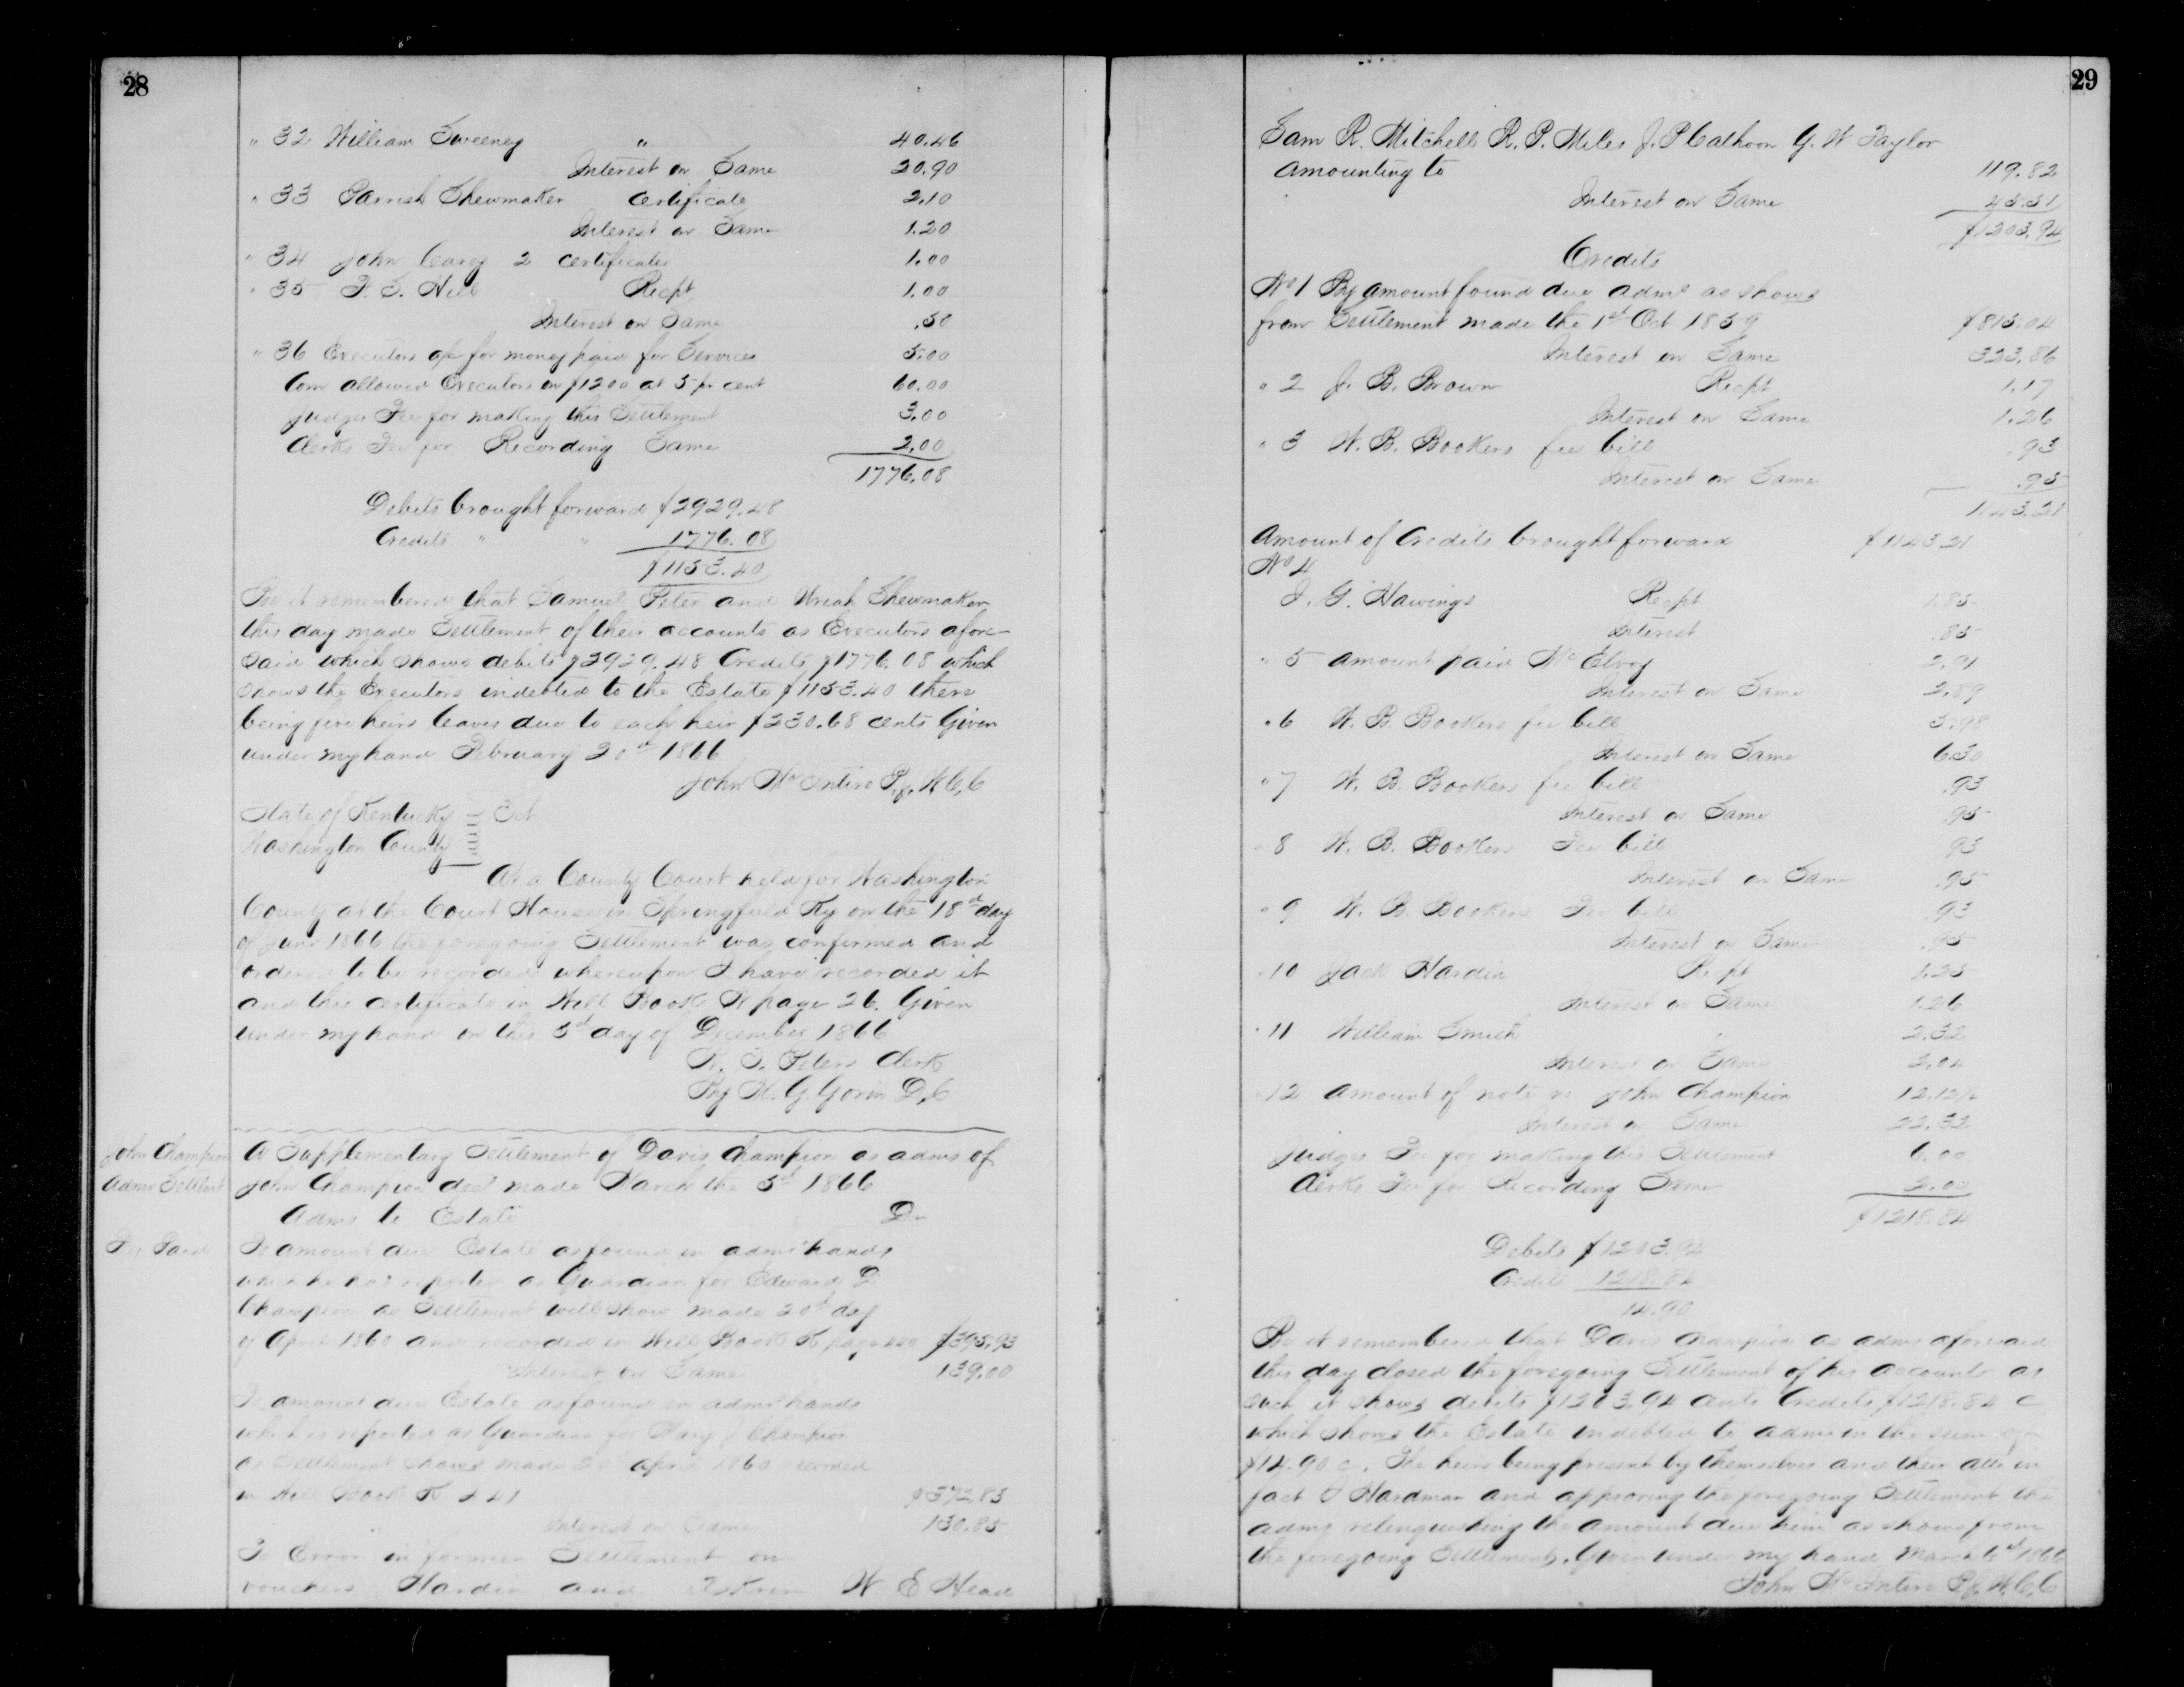 28
" 32 William Sweeney " 40.46
Interest on Same 20.90
" 33 Parrish Shewmaker Certificate 2.10
Interest on Same 1.20
" 34 John Carey 2 certificates 1.00
" 35 Recpt 1.00
Interest on Same .50
" 36 Executors for money paid for Services 5.00
Com allowed Executors on $1200 at 5 pr cent 60.00
Judges Fee for making this Settlement 3.00
Clerks Fee for Recording Same 2.00
1776.08
Debits brought forward $2929.48
Credits " " 1776.08
$1153.40
Be it remembered that Samuel Peter and Uriah Shewmaker
this day made Settlement of their accounts as Executors afore-
said which shows debits $2929.48 Credits $1776.08 which
shows the Executors indebted to the Estate $1153.40 there
being five heirs leaves due to each heir $230.68 cents Given
under my hand February 20th 1866
John McIntire P.J.W.C.C
State of Kentucky } Sct
Washington County }
At a County Court held for Washington
County at the Court House in Springfield Ky on the 18th day
of June 1866 the foregoing Settlement was confirmed and
ordered to be recorded whereupon I have recorded it
and this certificate in Will Book page 26. Given
under my hand on this 5th day of December 1866
Peters Clerk
By Gorin D.C
John Champion
Admr Settlmt
A Supplementary Settlement of Davis Champion as admr of
John Champion decd made March the 5th 1866
Admr to Estate Dr
Fee Paid
To amount due Estate as found in admrs hands
which he has reported as Guardian for Edward D
Champion as Settlement will show made 20th day
of April 1860 and recorded in Will Book page $395.93
Interest on Same 139.00
To amount due Estate as found in admrs hands
which is reported as Guardian for Mary J Champion
as Settlement shows made 20 april 1860 recorded
in Will Book $372.83
Interest on Same 130.85
To Error in former Settlement on
vouchers Hardin and W E Head
29
Sam R. Mitchell R. P. Miles J. P Calhoon G. W Taylor
amounting to 119.82
Interest on Same 45.51
$1203.94
Credits
No 1 By amount found due admr as shows
from Settlement made the 1st Oct 1859 $815.04
Interest on Same 323.86
" 2 J. B. Brown Recpt 1.17
Interest on Same 1.26
" 3 W. B. Bookers fee bill .93
Interest on Same .95
1143.21
Amount of Credits brought forward $1143.21
No 4
J. G. Hawings Recpt 1.85
Interest .85
" 5 amount paid McElroy 2.91
Interest on Same 2.89
" 6 W. B. Bookers fee bill 5.98
Interest on Same 6.50
" 7 W. B. Bookers fee bill .93
Interest on Same .95
" 8 W. B. Bookers Fee bill 93
Interest on Same .95
" 9 W. B. Bookers Fee bill .93
Interest on Same .95
" 10 Jack Hardin Recpt 1.25
Interest on Same 1.26
" 11 William Smith " 2.32
Interest on Same 2.04
" 12 Amount of note vs John Champion 12.12½
Interest on Same 22.32
Judges Fee for making this Settlement 6.00
Clerks Fee for Recording Same 2.00
$1218.84
Debits $1203.94
Credits 1218.84
14.90
Be it remembered that Davis Champion as admr aforesaid
this day closed the foregoing Settlement of his accounts as
such it shows debits $1203.94 cents Credits $1218.84 c
which shows the Estate indebted to admr in the sum of
$14.90 c. The heirs being present by themselves and their atto in
fact Hardman and approving the foregoing Settlement the
admr relinquishing the amount due him as shows from
the foregoing Settlement. Given under my hand March 6th 1866
John McIntire P.J.W.C.C